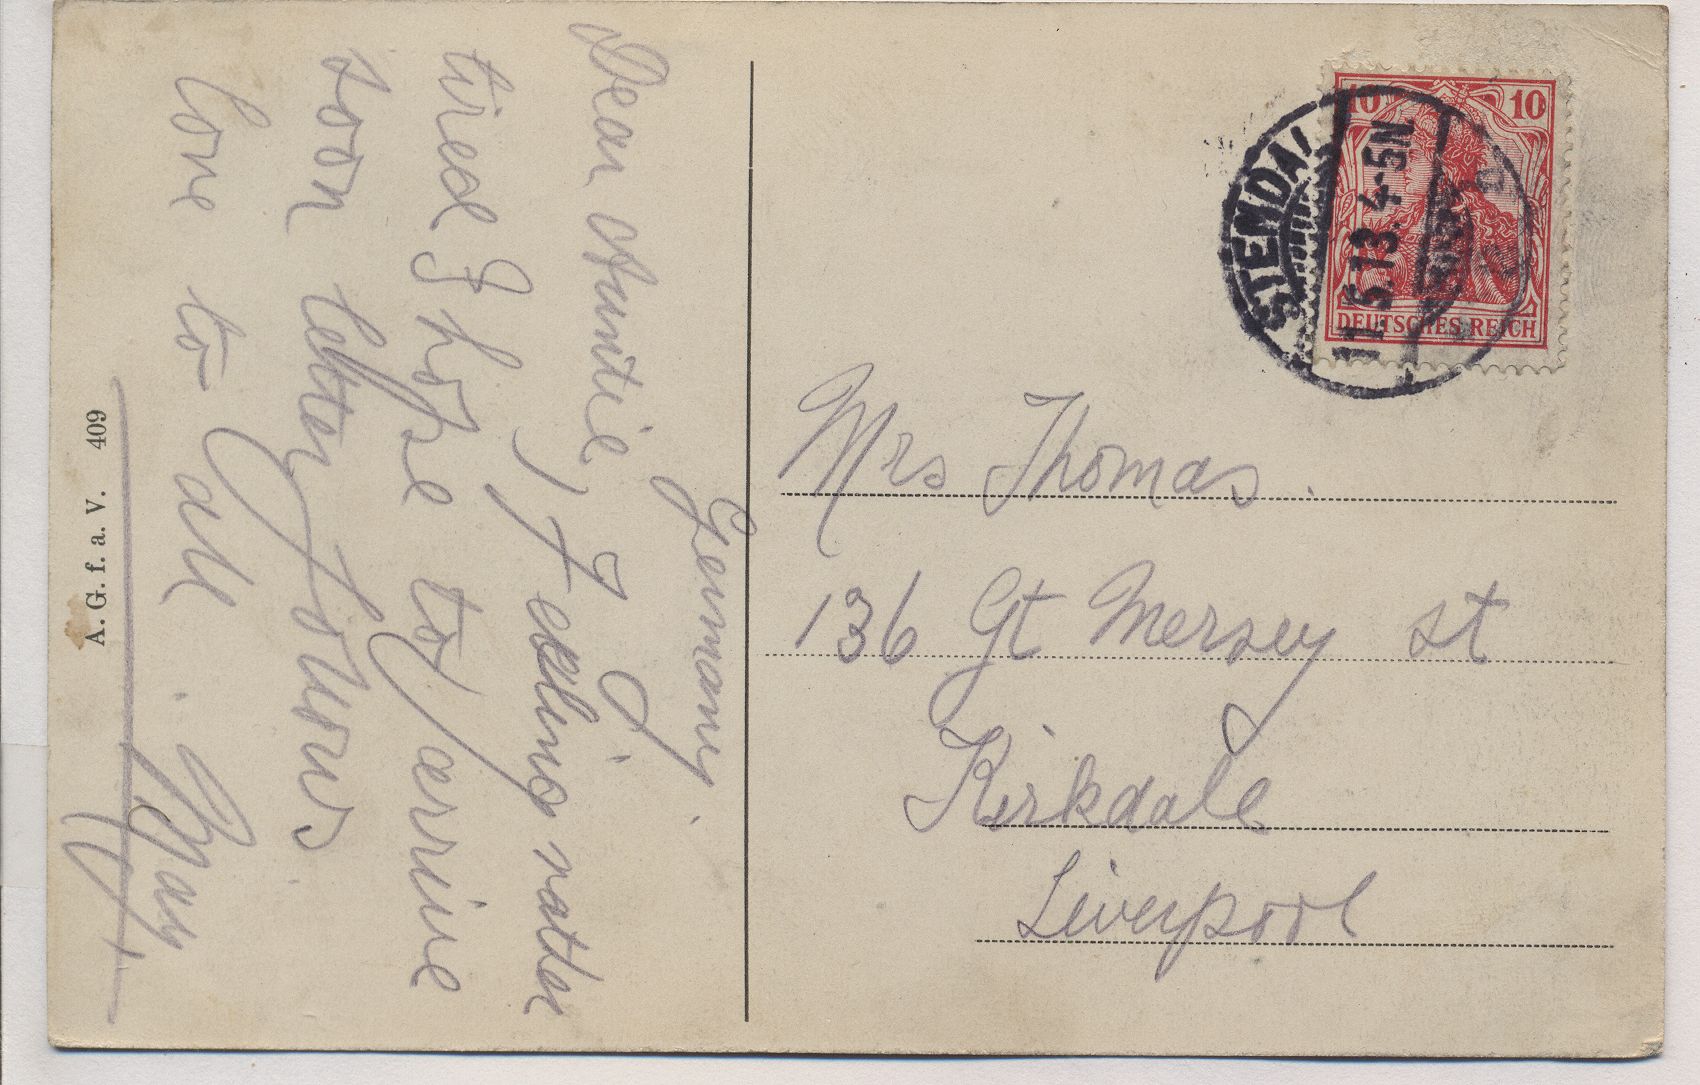 Germany.
Dear Auntie
Feeling rather
tired I hope to arrive
soon letter follows
love to all. May
A. G. f. a. V. 409
10 10
DEUTSCHES REICH
STENDAL
11.5.13. 4-5N
Mrs Thomas.
136 Gt Mersey St
Kirkdale
Liverpool